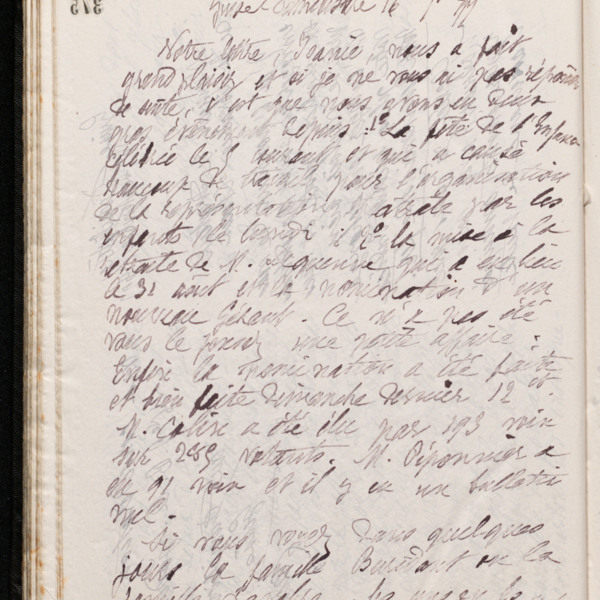 Guise Familistère 16 7bre 97
Votre lettre, Joanie, nous a fait
grand plaisir et si je ne vous ai pas répondu
de suite, c'est que nous avons eu deux
gros événements depuis. 1º La fête de l'Enfance
célébrée le 5 courant et qui a causé
beaucoup de travail pour l'organisation
de la représentation théâtrale par les
enfants le lundi ; 2º la mise à la
retraite de M. Dequenne qui a eu lieu
le 31 août et la nomination d'un
nouveau Gérant. Ce n'a pas été
vous le pensez une petite affaire.
Enfin la nomination a été faite
et bien faite Dimanche dernier 12 ct.
M. Colin a été élu par 193 voix
sur 285 votants. M. Piponnier a
eu 91 voix et il y eu un bulletin
nul.
Si vous voyez dans quelques
jours la famille Buridant ou la
famille